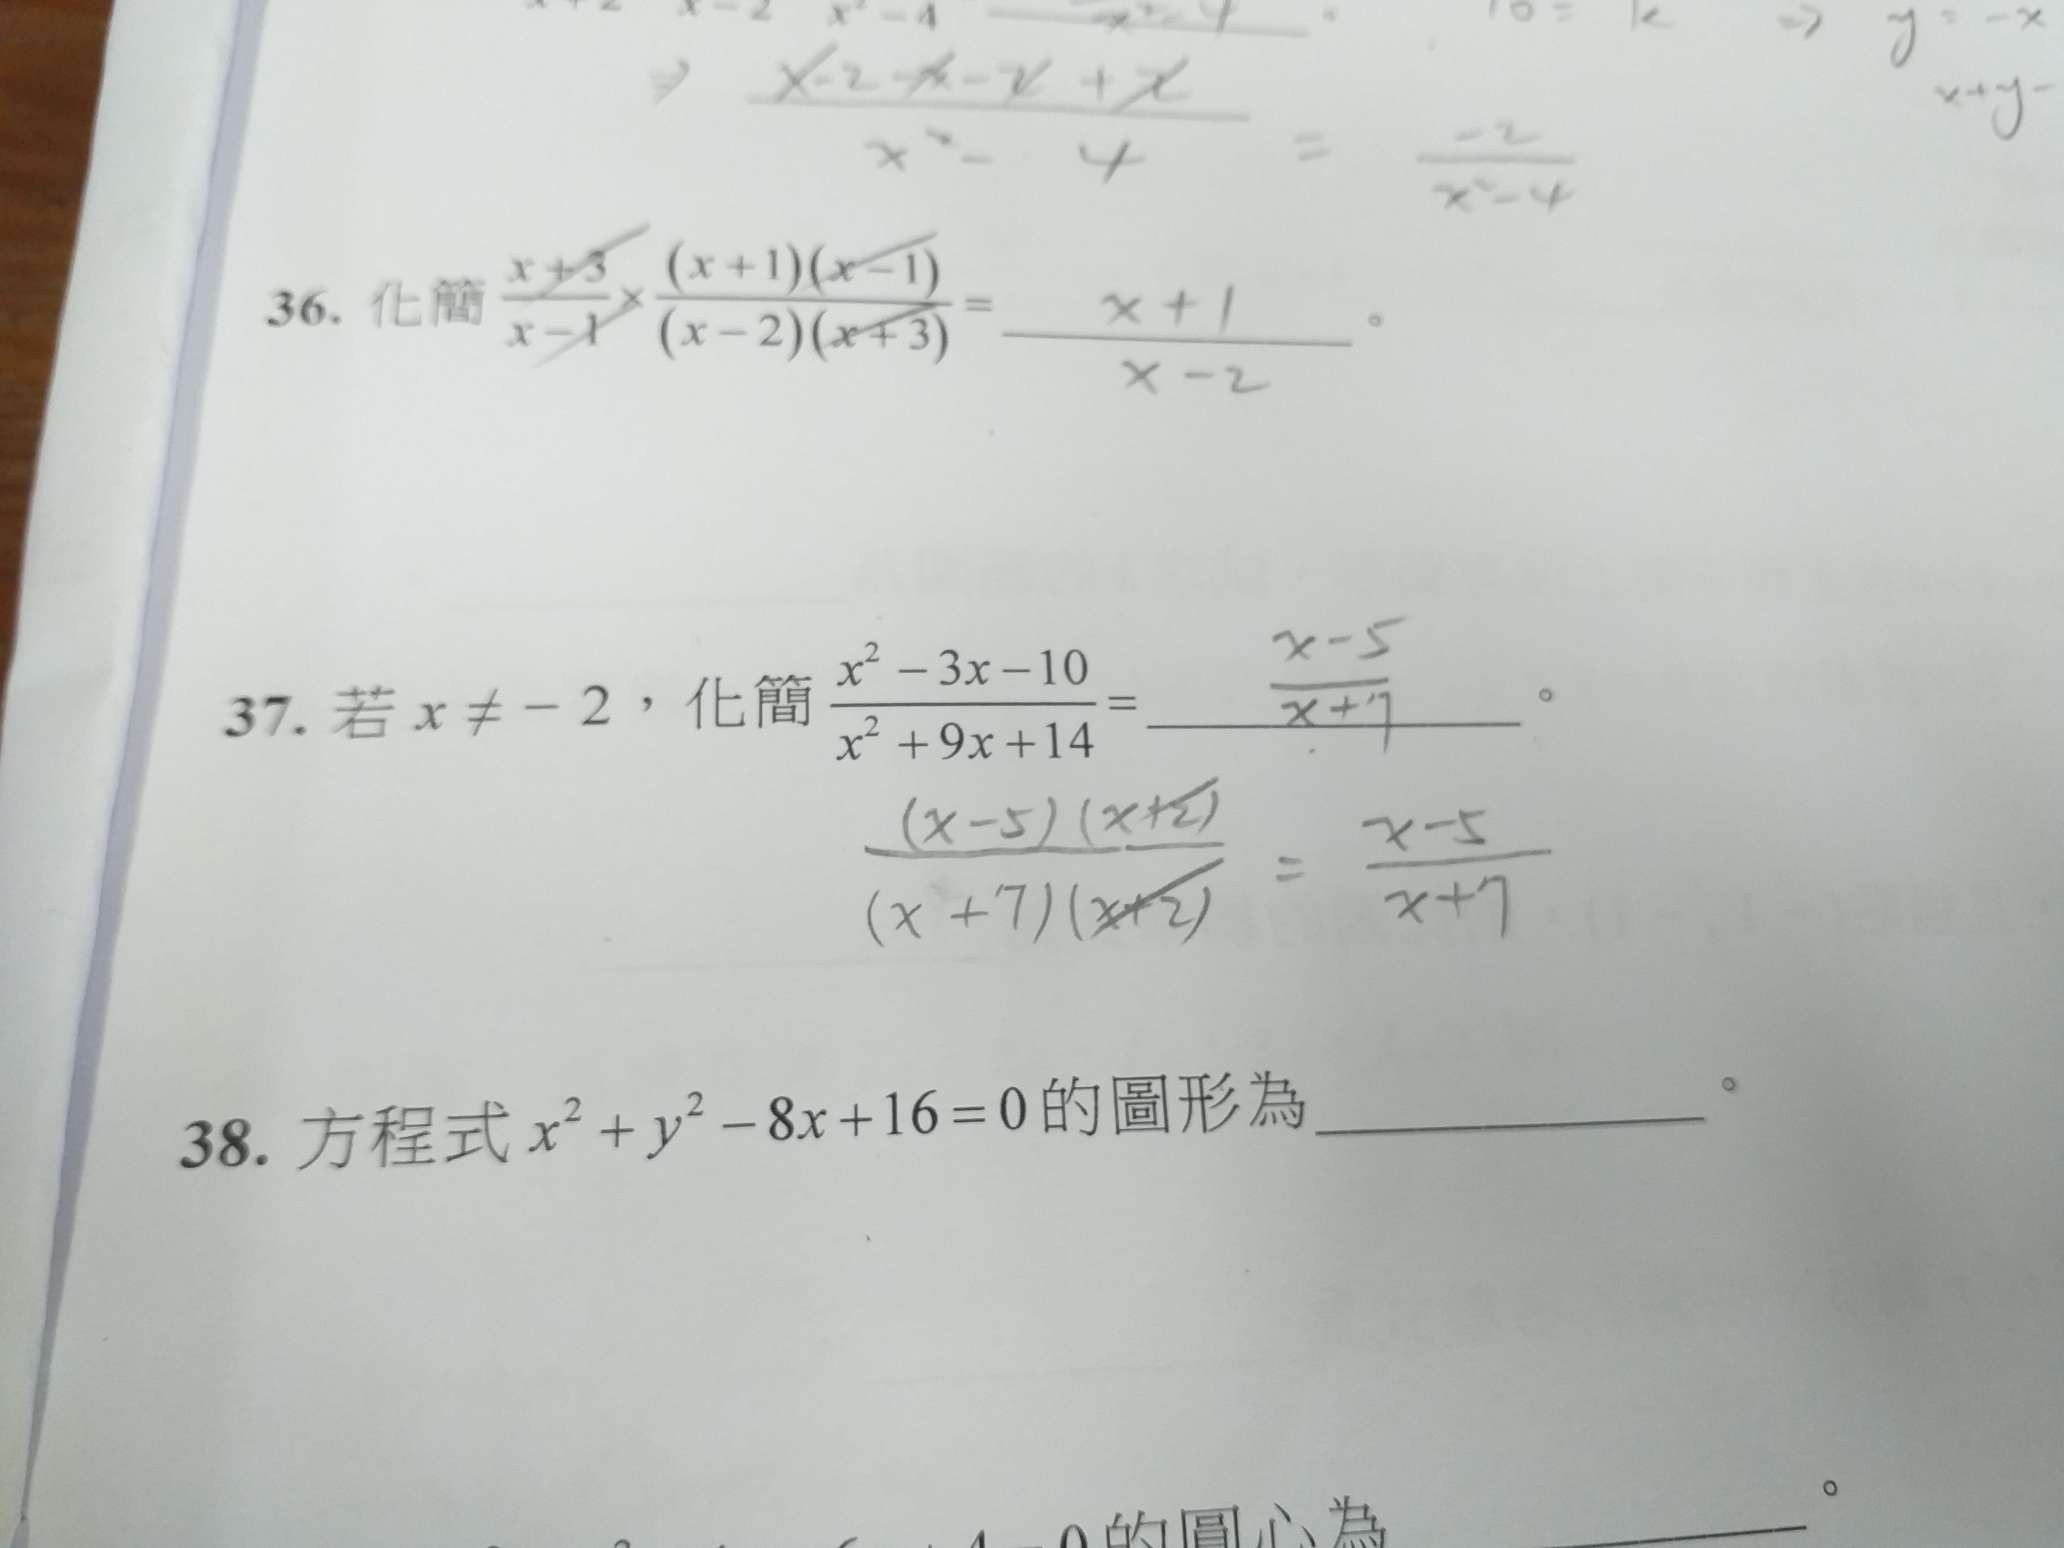 x² - 4
10 = k ⇒ y = -x
⇒ (x-2-x-2+x)/(x²-4) = -2/(x²-4)
x+y-
36. 化簡 (x+3)/(x-1) × ((x+1)(x-1))/((x-2)(x+3)) = (x+1)/(x-2) 。
37. 若 x ≠ -2，化簡 (x²-3x-10)/(x²+9x+14) = (x-5)/(x+7) 。
((x-5)(x+2))/((x+7)(x+2)) = (x-5)/(x+7)
38. 方程式 x² + y² - 8x + 16 = 0 的圖形為________。
的圓心為________。